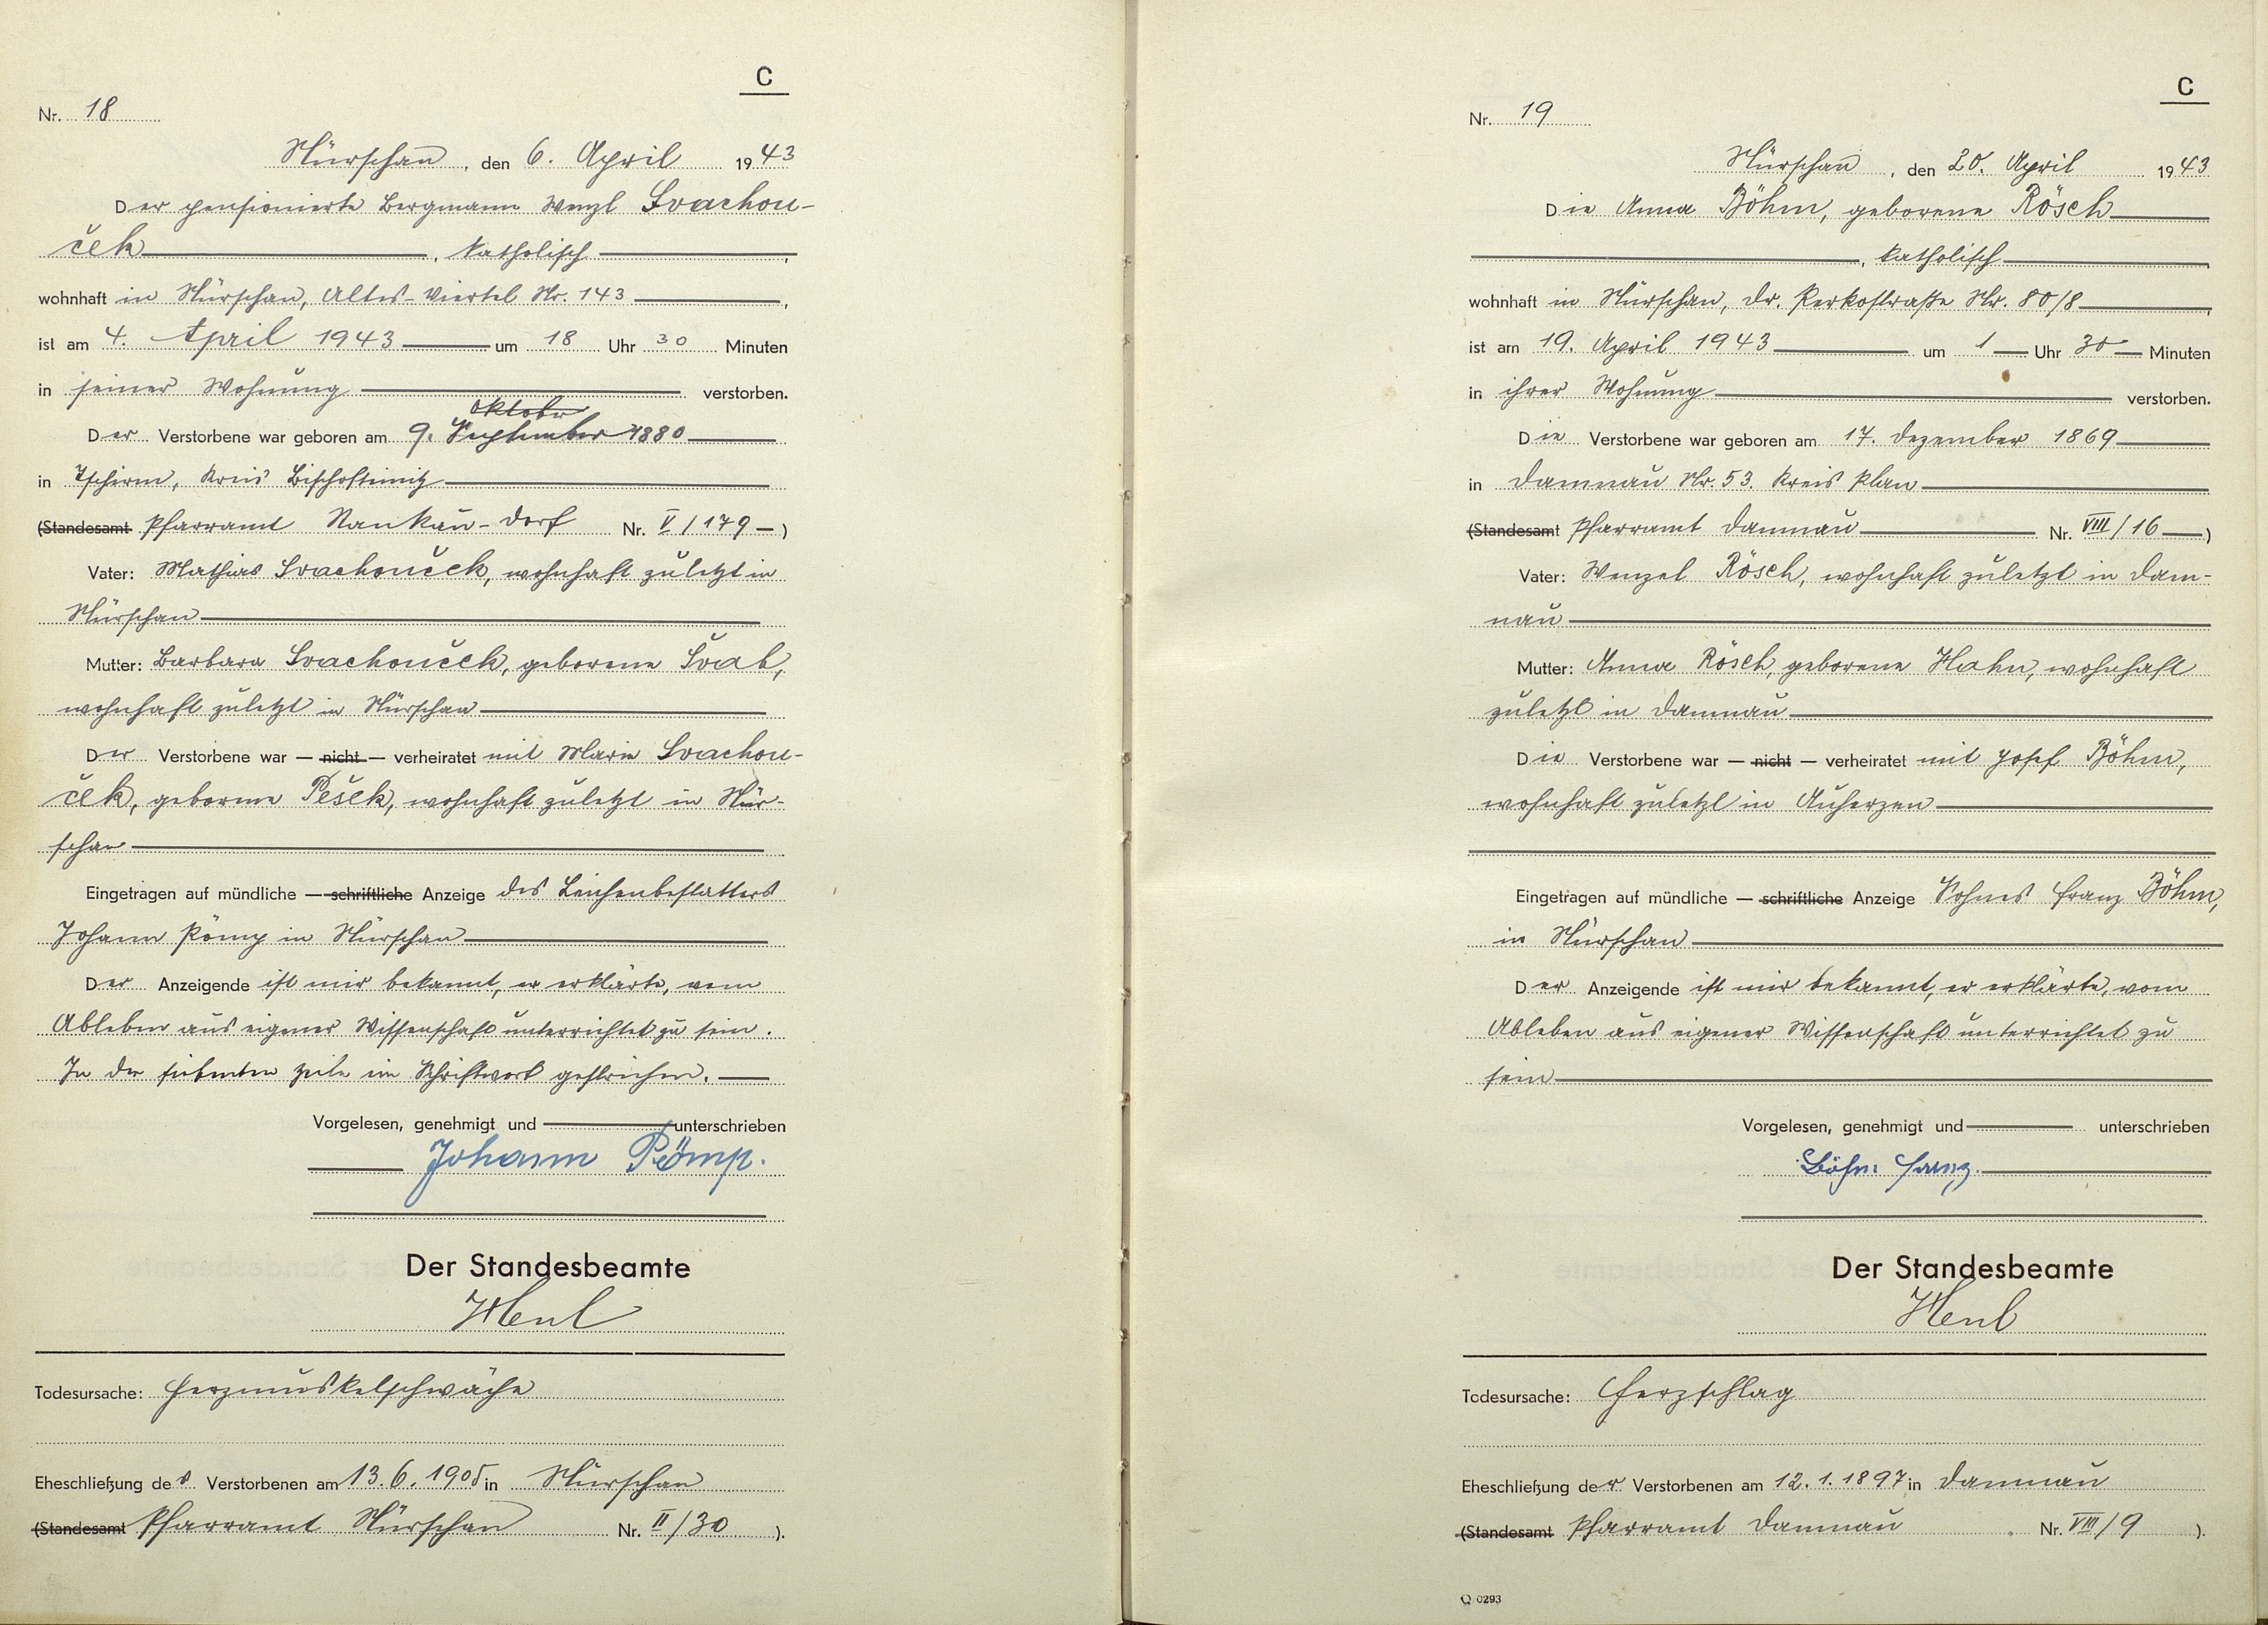 C
Nr. 18
Nürschan, den 6. April 1943
Der pensionierte Bergmann Wenzl Svachou-
ček, katholisch,
wohnhaft in Nürschan, Altes-Viertel Nr. 143,
ist am 4. April 1943 um 18 Uhr 30 Minuten
in seiner Wohnung verstorben.
Oktober
Der Verstorbene war geboren am 9. September 1880
in Tschirm, Kreis Bischofteinitz
(Standesamt Pfarramt Nankau-Dorf Nr. V/179 )
Vater: Mathias Svachouček, wohnhaft zuletzt in
Nürschan
Mutter: Barbara Svachouček, geborene Švab,
wohnhaft zuletzt in Nürschan
Der Verstorbene war — nicht — verheiratet mit Marie Svachou-
ček, geborene Pešek, wohnhaft zuletzt in Nür-
schan
Eingetragen auf mündliche — schriftliche Anzeige des Leichenbestatters
Johann Pömp in Nürschan
Der Anzeigende ist mir bekannt, er erklärte, vom
Ableben aus eigener Wissenschaft unterrichtet zu sein.
In der siebenten Zeile ein Schriftwort gestrichen.
Vorgelesen, genehmigt und unterschrieben
Johann Pömp.
Der Standesbeamte
Henl
Todesursache: Herzmuskelschwäche
Eheschließung des Verstorbenen am 13.6.1905 in Nürschan
(Standesamt Pfarramt Nürschan Nr. II/30 ).
C
Nr. 19
Nürschan, den 20. April 1943
Die Anna Böhm, geborene Rösch
, katholisch
wohnhaft in Nürschan, Dr. Perkostraße Nr. 80/8,
ist am 19. April 1943 um 1 Uhr 30 Minuten
in ihrer Wohnung verstorben.
Die Verstorbene war geboren am 17. Dezember 1869
in Damnau Nr. 53. Kreis Plan
(Standesamt Pfarramt Damnau Nr. VIII/16 )
Vater: Wenzel Rösch, wohnhaft zuletzt in Dam-
nau
Mutter: Anna Rösch, geborene Hahn, wohnhaft
zuletzt in Damnau
Die Verstorbene war — nicht — verheiratet mit Josef Böhm,
wohnhaft zuletzt in Auherzen
Eingetragen auf mündliche — schriftliche Anzeige Sohnes Franz Böhm,
in Nürschan
Der Anzeigende ist mir bekannt, er erklärte, vom
Ableben aus eigener Wissenschaft unterrichtet zu
sein
Vorgelesen, genehmigt und unterschrieben
Böhm Franz
Der Standesbeamte
Henl
Todesursache: Herzschlag
Eheschließung der Verstorbenen am 12.1.1897 in Damnau
(Standesamt Pfarramt Damnau Nr. VIII/9 ).
Q 0293